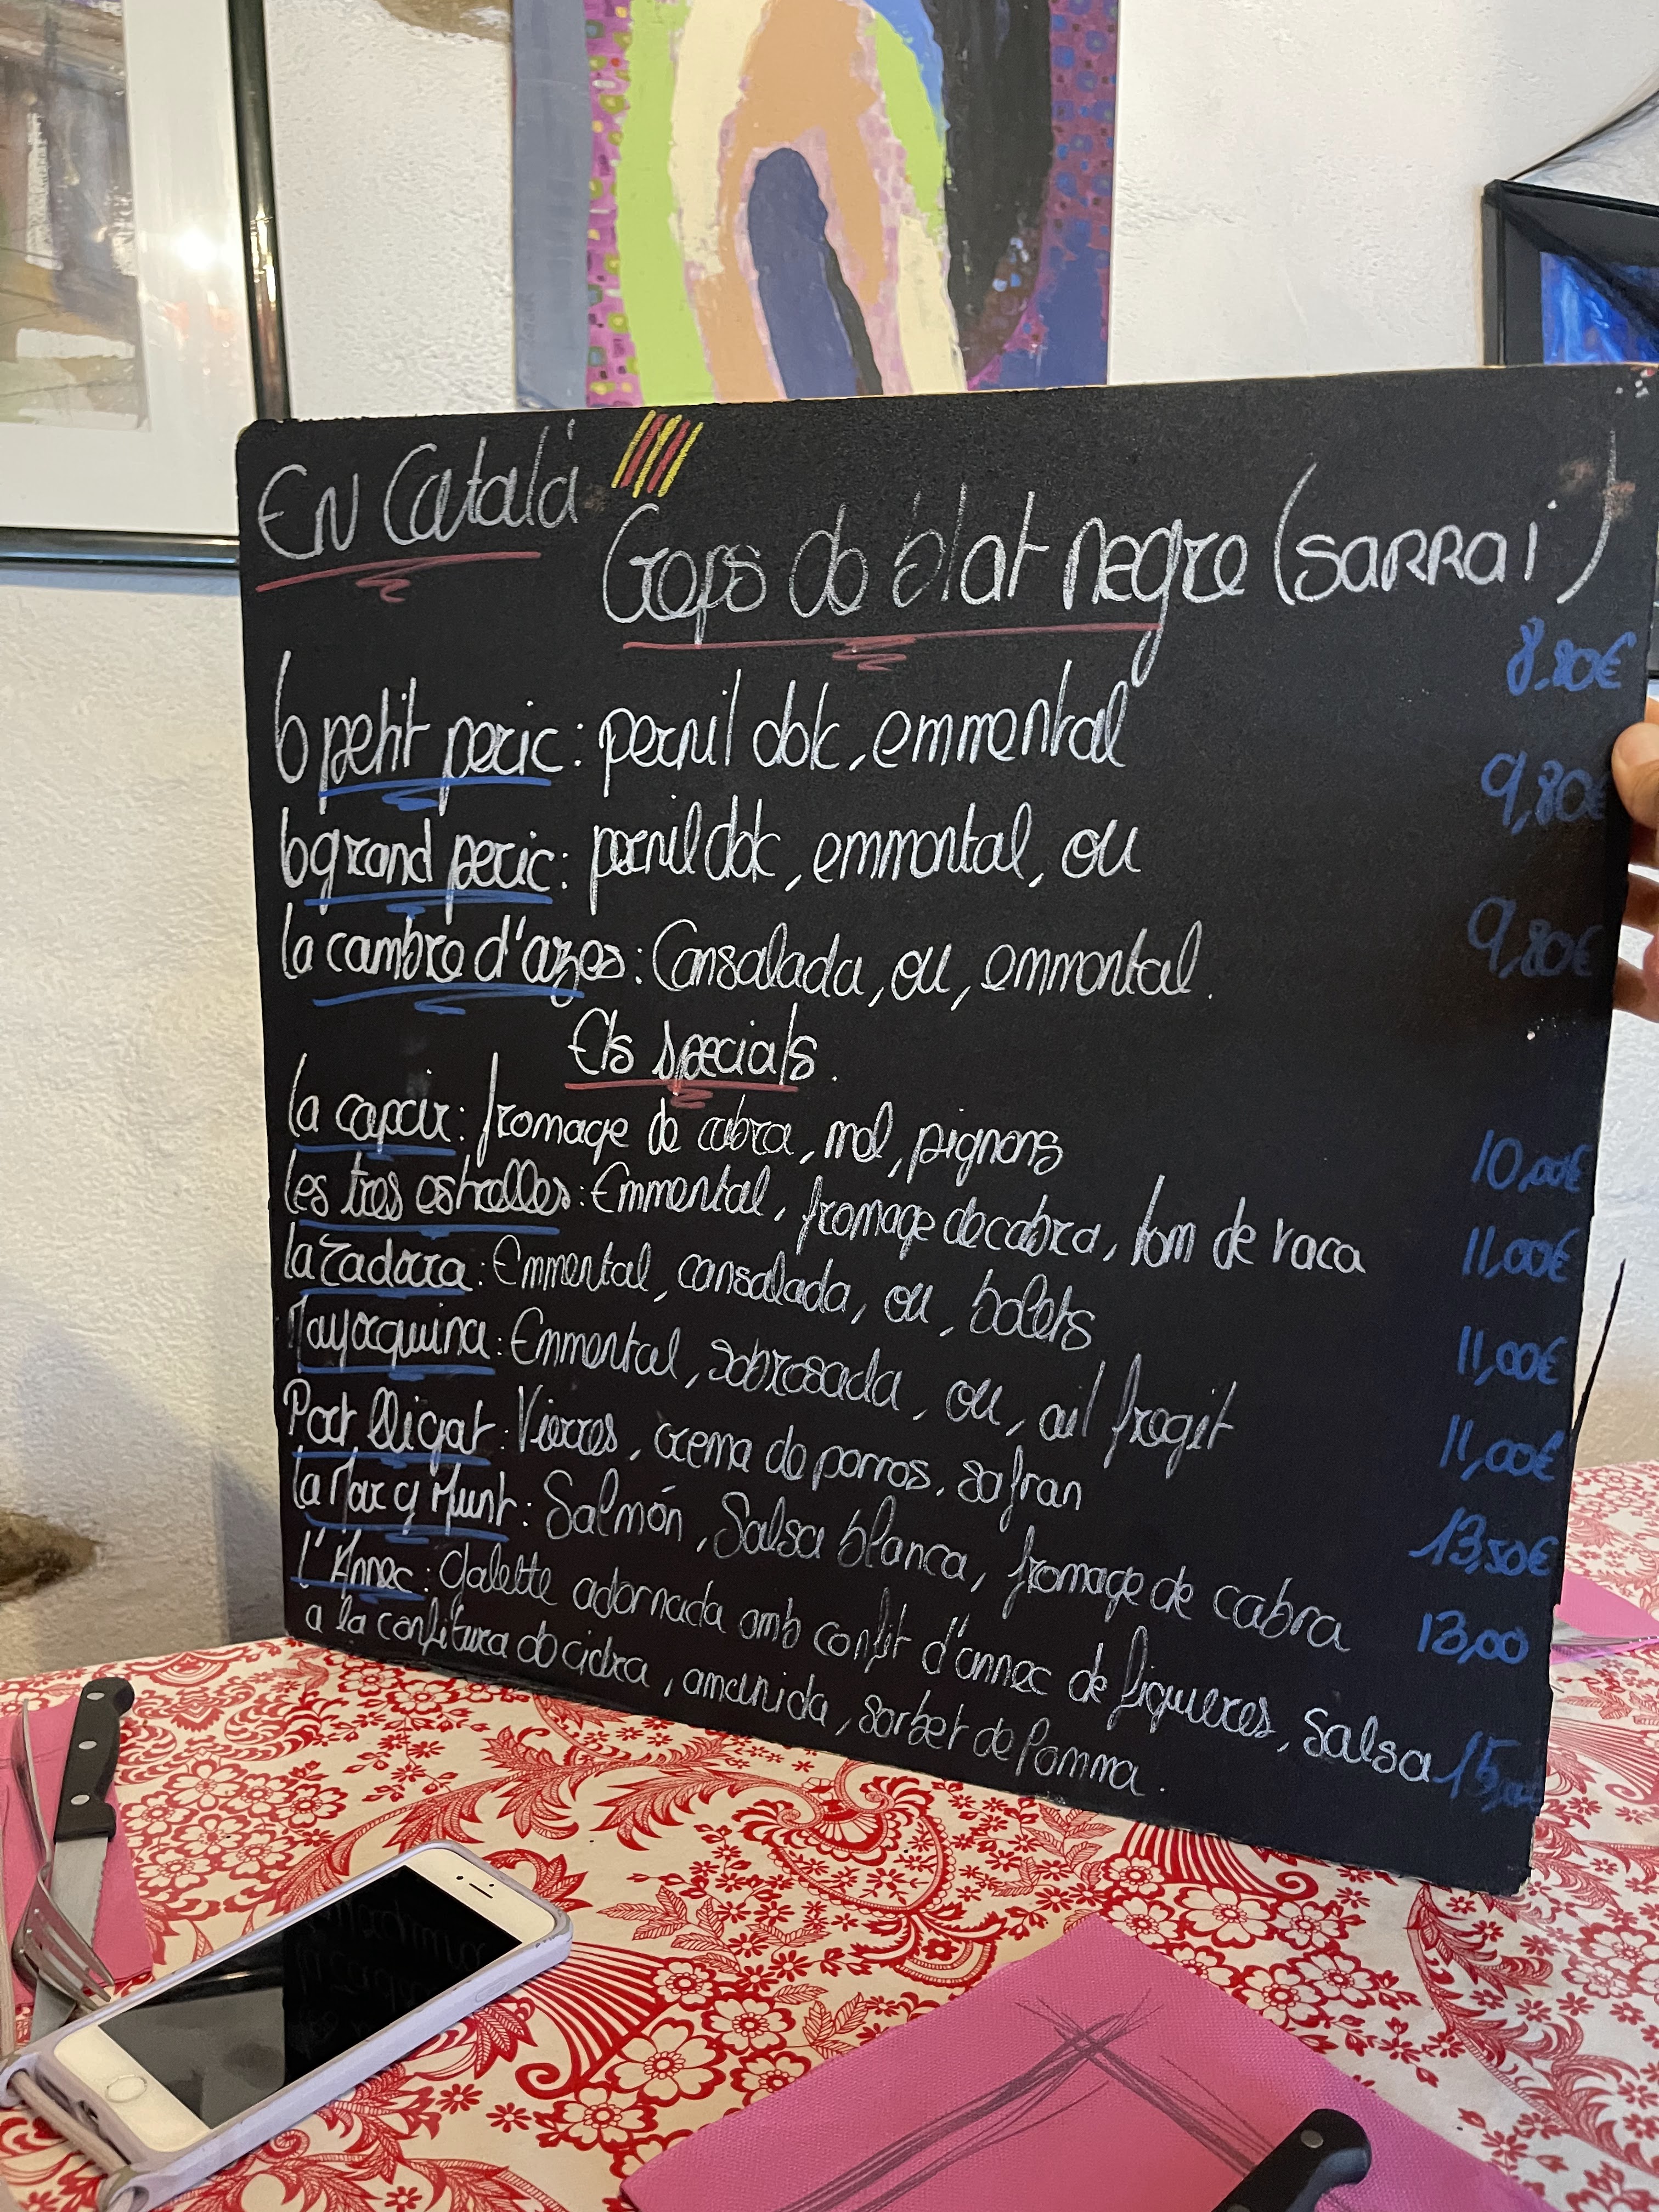 En Català
Creps de blat negre (SARRAÏ)
le petit peric : pernil dolç, emmental 8.80€
le grand peric : pernil dolç, emmental, ou 9,80€
la cambre d'azes : Cansalada, ou, emmental. 9,80€
Els specials.
la capcir : fromage de cabra, mel, pignons 10,00€
les tres estrelles : Emmental, fromage de cabra, tom de vaca 11,00€
la : Emmental, cansalada, ou, bolets 11,00€
Mayorquina : Emmental, sobrasada, ou, ail fregit 11,00€
Port lligat : Vieires, crema de porros, safran 13,50€
la Mar y Munt : Salmón, Salsa blanca, fromage de cabra 13,00
l'Annec : Galette adornada amb confit d'annec de figueres, salsa
a la confitura de cidra, amanida, sorbet de Pomma.